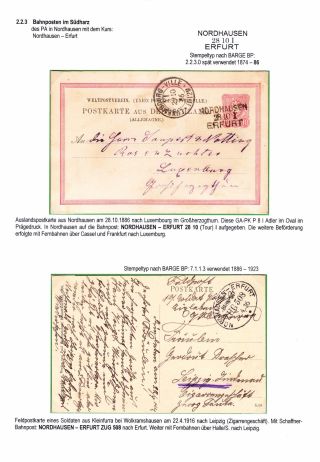 2.2.3 Bahnposten im Südharz
des PA in Nordhausen mit dem Kurs:
Nordhausen – Erfurt
NORDHAUSEN
28 10 I
ERFURT
Stempeltyp nach BARGE BP:
2.2.3.0 spät verwendet 1874 – 86
WELTPOSTVEREIN. (UNION POSTALE UNIVERSELLE)
POSTKARTE AUS DEUTSCHLAND
(ALLEMAGNE)
NORDHAUSEN
28 10 I
ERFURT
An die Herren
Luxemburg
Auslandspostkarte aus Nordhausen am 28.10.1886 nach Luxembourg im Großherzogthum. Diese GA-PK P 8 I Adler im Oval im
Prägedruck. In Nordhausen auf die Bahnpost: NORDHAUSEN – ERFURT 28 10 (Tour) I aufgegeben. Die weitere Beförderung
erfolgte mit Fernbahnen über Cassel und Frankfurt nach Luxemburg.
Stempeltyp nach BARGE BP: 7.1.1.3 verwendet 1886 – 1923
Feldpost
NORDHAUSEN – ERFURT
Fräulein
Leipzig – Lindenau
Zigarrengeschäft
Feldpostkarte eines Soldaten aus Kleinfurra bei Wolkramshausen am 22.4.1916 nach Leipzig (Zigarrengeschäft). Mit Schaffner-
Bahnpost: NORDHAUSEN – ERFURT ZUG 508 nach Erfurt. Weiter mit Fernbahnen über Halle/S. nach Leipzig.